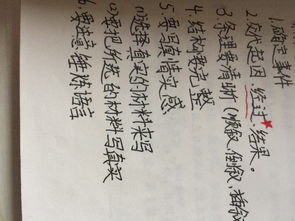 1.确定事件
2.交代起因 经过 结果。
3.条理要清晰(顺叙、倒叙、插叙
4.结构要完整
5.要写真情实感
(1)选择真实的材料来写
(2)要把所选的材料写真实
6.要注意锤炼语言